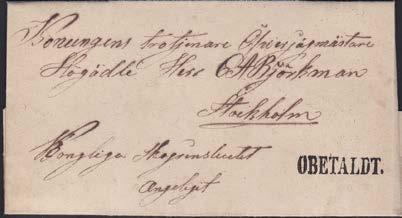 Konungens trotjenare Öfverjägmästare
Högädle Herr C A Björkman
Stockholm
Kongliga Skogsinstitutet
OBETALDT.
Angeläget